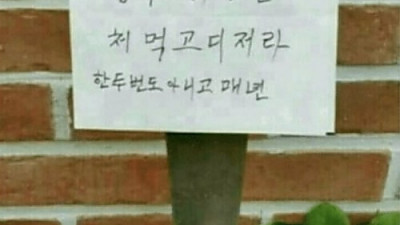 쳐먹고디져라
한두번도아니고매년